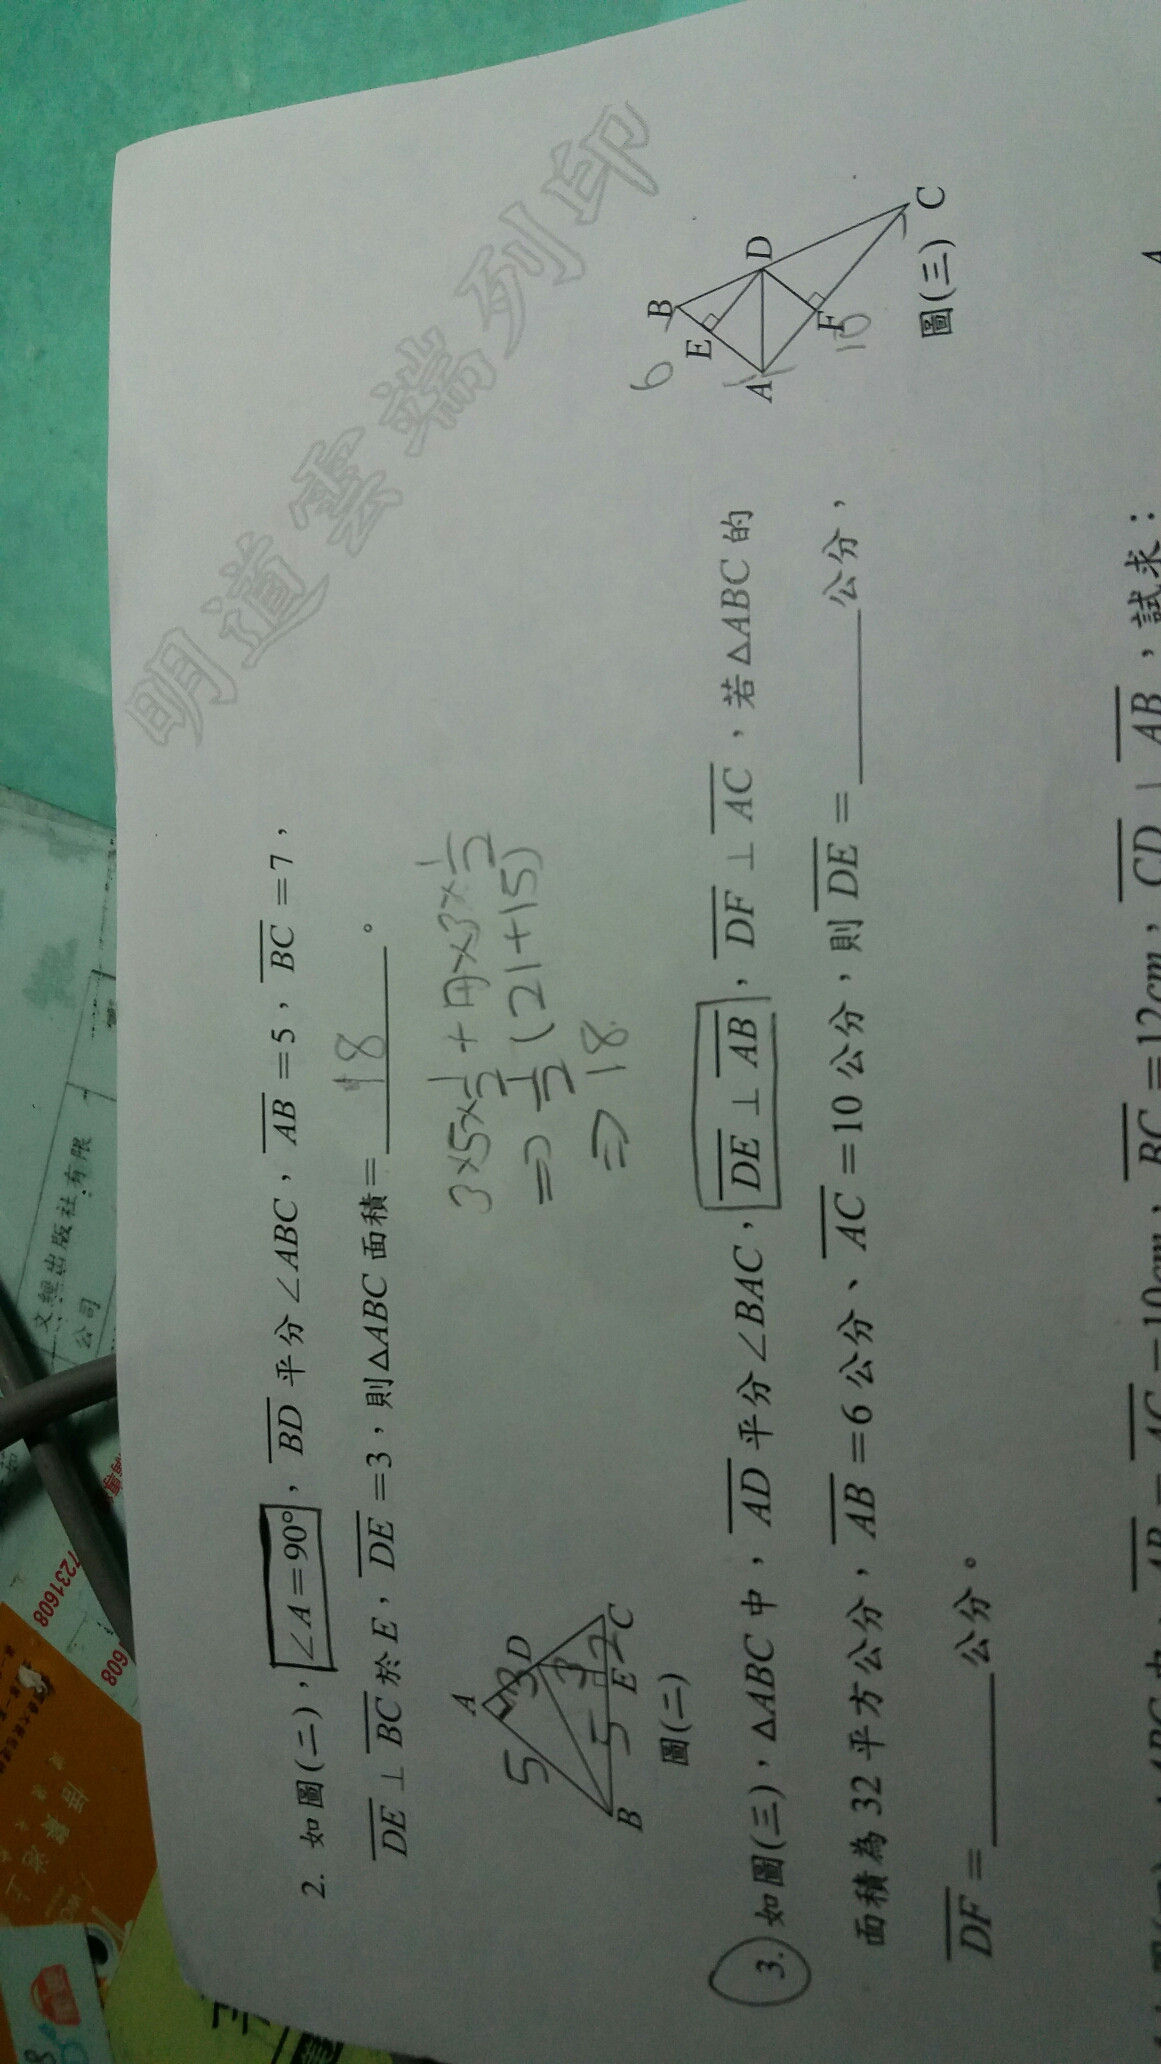 明道雲端列印
2. 如圖(二)，∠A=90°，BD 平分∠ABC，AB=5，BC=7，
DE⊥BC 於 E，DE=3，則△ABC 面積= 18 。
A
D
B
E
C
5
3
3
5
2
圖(二)
3×5×1/2+7×3×1/2
⇒1/2(21+15)
⇒18
3. 如圖(三)，△ABC 中，AD 平分∠BAC，DE⊥AB，DF⊥AC，若△ABC 的
面積為 32 平方公分，AB=6 公分、AC=10 公分，則 DE=______公分，
DF=______公分。
B
E
D
A
F
C
6
10
圖(三)
BC=12cm，CD⊥AB，試求：
文經出版社有限
公司
7231608
608